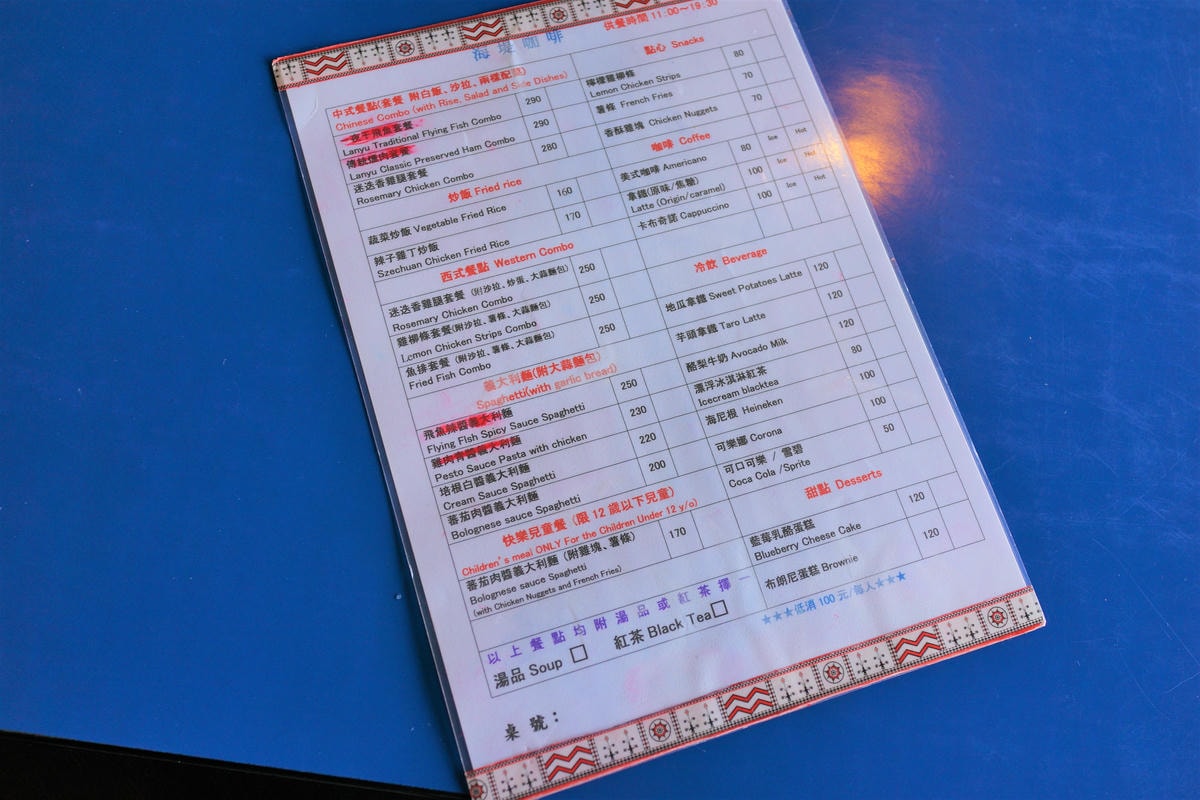 海堤咖啡
供餐時間 11:00～19:30
中式餐點(套餐 附白飯、沙拉、兩樣配菜)
Chinese Combo (with Rise, Salad and Side Dishes)
一夜干飛魚套餐
Lanyu Traditional Flying Fish Combo 290
傳統燻肉套餐
Lanyu Classic Preserved Ham Combo 290
迷迭香雞腿套餐
Rosemary Chicken Combo 280
炒飯 Fried rice
蔬菜炒飯 Vegetable Fried Rice 160
辣子雞丁炒飯
Szechuan Chicken Fried Rice 170
西式餐點 Western Combo
迷迭香雞腿套餐 (附沙拉、炒蛋、大蒜麵包)
Rosemary Chicken Combo 250
雞柳條套餐(附沙拉、薯條、大蒜麵包)
Lemon Chicken Strips Combo 250
魚排套餐 (附沙拉、薯條、大蒜麵包)
Fried Fish Combo 250
義大利麵(附大蒜麵包)
Spaghetti(with garlic bread)
飛魚辣醬義大利麵
Flying FIsh Spicy Sauce Spaghetti 250
雞肉青醬義大利麵
Pesto Sauce Pasta with chicken 230
培根白醬義大利麵
Cream Sauce Spaghetti 220
蕃茄肉醬義大利麵
Bolognese sauce Spaghetti 200
快樂兒童餐 (限 12 歲以下兒童)
Children's meal ONLY For the Children Under 12 y/o)
蕃茄肉醬義大利麵 (附雞塊、薯條)
Bolognese sauce Spaghetti 170
(with Chicken Nuggets and French Fries)
以上餐點均附湯品或紅茶擇一
湯品 Soup □ 紅茶 Black Tea□
桌號：
點心 Snacks
檸檬雞柳條
Lemon Chicken Strips 80
薯條 French Fries 70
香酥雞塊 Chicken Nuggets 70
咖啡 Coffee
美式咖啡 Americano 80 Ice Hot
拿鐵(原味/焦糖)
Latte (Origin/caramel) 100 Ice Hot
卡布奇諾 Cappuccino 100 Ice Hot
冷飲 Beverage
地瓜拿鐵 Sweet Potatoes Latte 120
芋頭拿鐵 Taro Latte 120
酪梨牛奶 Avocado Milk 120
漂浮冰淇淋紅茶
Icecream blacktea 80
海尼根 Heineken 100
可樂娜 Corona 100
可口可樂 / 雪碧
Coca Cola /Sprite 50
甜點 Desserts
藍莓乳酪蛋糕
Blueberry Cheese Cake 120
布朗尼蛋糕 Brownie 120
★★★低消 100 元/每人★★★